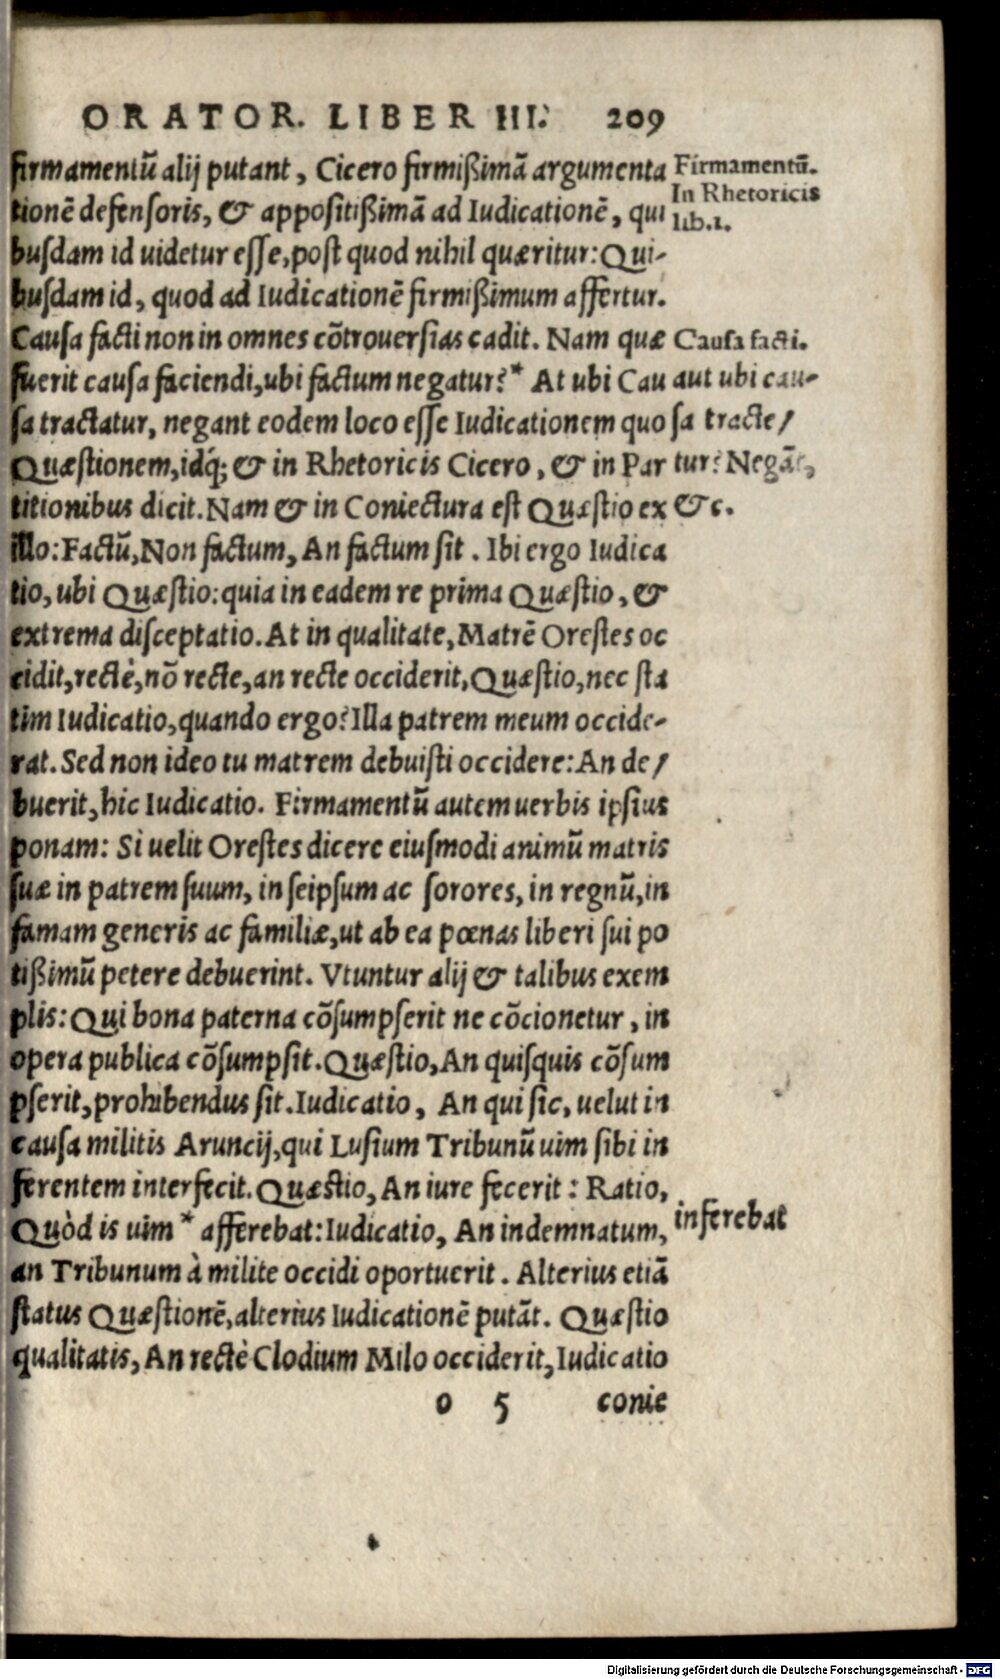 ORATOR. LIBER III. 209
firmamentũ alij putant, Cicero firmißimã argumenta
tionẽ defensoris, & appositißimã ad Iudicationẽ, qui
busdam id uidetur esse, post quod nihil quæritur: Qui-
busdam id, quod ad Iudicationẽ firmißimum affertur.
Causa facti non in omnes cõtrouersias cadit. Nam quæ
fuerit causa faciendi, ubi factum negatur?* At ubi Cau
sa tractatur, negant eodem loco esse Iudicationem quo
Quæstionem, idq́; & in Rhetoricis Cicero, & in Par
titionibus dicit. Nam & in Coniectura est Quæstio ex
illo: Factũ, Non factum, An factum sit. Ibi ergo Iudica
tio, ubi Quæstio: quia in eadem re prima Quæstio, &
extrema disceptatio. At in qualitate, Matrẽ Orestes oc
cidit, rectè, nõ recte, an recte occiderit, Quæstio, nec sta
tim Iudicatio, quando ergo? Illa patrem meum occide-
rat. Sed non ideo tu matrem debuisti occidere: An de/
buerit, hic Iudicatio. Firmamentũ autem uerbis ipsius
ponam: Si uelit Orestes dicere eiusmodi animũ matris
suæ in patrem suum, in seipsum ac sorores, in regnũ, in
famam generis ac familiæ, ut ab ea pœnas liberi sui po
tißimũ petere debuerint. Vtuntur alij & talibus exem
plis: Qui bona paterna cõsumpserit ne cõcionetur, in
opera publica cõsumpsit. Quæstio, An quisquis cõsum
pserit, prohibendus sit. Iudicatio, An qui sic, uelut in
causa militis Aruncij, qui Lusium Tribunũ uim sibi in
ferentem interfecit. Quæstio, An iure fecerit: Ratio,
Quòd is uim * afferebat: Iudicatio, An indemnatum,
an Tribunum à milite occidi oportuerit. Alterius etiã
status Quæstionẽ, alterius Iudicationẽ putãt. Quæstio
qualitatis, An rectè Clodium Milo occiderit, Iudicatio
o 5 conie
Firmamentũ.
In Rhetoricis
lib.1.
Causa facti.
aut ubi cau-
sa tracte/
tur? Negãt,
&c.
inferebat
Digitalisierung gefördert durch die Deutsche Forschungsgemeinschaft - DFG